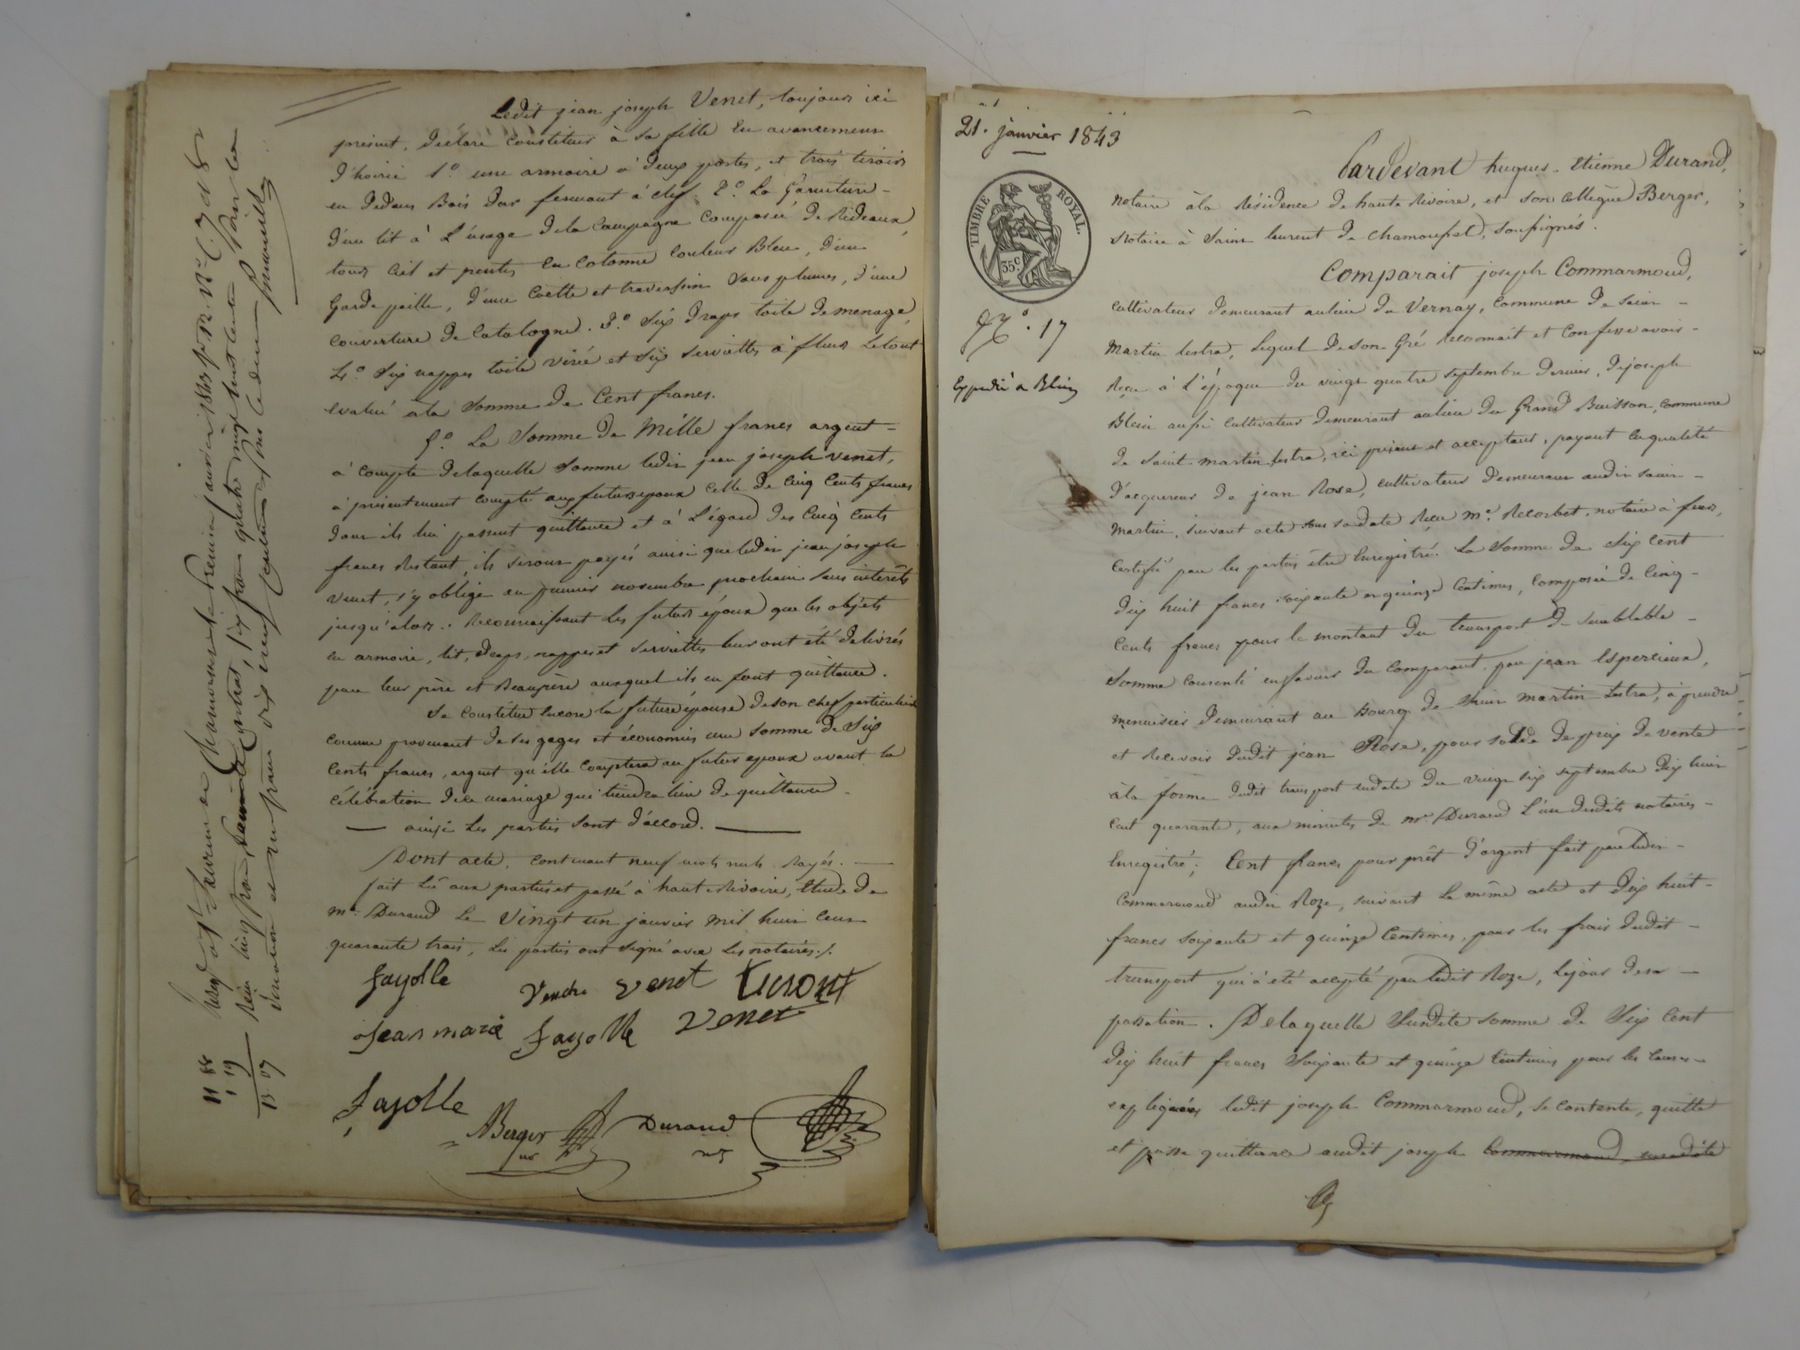 Ledit jean joseph Venet, toujours ici
présent, déclare constituer à sa fille en avancement
d'hoirie 1.° une armoire à deux portes, et trois tiroirs
en dedans Bois dur fermant à clef 2.° La Garniture
d'un lit à L'usage de la Campagne Composée de Rideaux,
tour Ciel et pentes En Cotonne Couleur Bleu, d'un
Garde paille, d'une Coette et traversin Sans plumes, d'une
Couverture de Catalogne. 3.° Six draps toile de menage,
4.° Six nappes toile et Six Serviettes à fleurs Le tout
évalué à la Somme de Cent francs.
5.° La Somme de Mille francs argent
à compte de laquelle Somme ledit jean joseph Venet,
à présentement compté aux futurs époux Celle de Cinq Cents francs
dont ils lui passent quittance et à L'égard des Cinq Cents
francs Restant, ils seront payés ainsi que ledit jean joseph
Venet, s'y oblige au premier novembre prochain Sans intérêts
jusqu'alors. Reconnaissant les futurs époux que les objets
en armoire, lit, draps, nappes et Serviettes leur ont été délivrés
par leur père et Beaupère auxquel ils en font quittance.
Se Constitue Encore la future épouse de son chef particulier
comme provenant de ses gages et économies une somme de Six
Cents francs, argent qu'elle Comptera au futur époux avant la
célébration de ce mariage qui tiendra lieu de quittance
ainsi Les parties Sont d'accord.
Dont acte, contenant neuf mots nuls Rayés.
fait Lû aux parties et passé à haute Rivoire, Etude de
Me. Durand Le Vingt un janvier mil huit Cent
quarante trois, Les parties ont Signé avec Les notaires./.
fayolle Venet
jean marie fayolle Venet
fayolle
Berger
Durand
11 88
1 19
13 07
21. janvier 1843
TIMBRE ROYAL.
35c.
N.° 17
Expédié à Blein
Pardevant hugues-Etienne Durand,
notaire à la Résidence de haute Rivoire, et son Collègue Berger,
Notaire à Saint laurent de Chamousset, soussignés.
Comparait joseph Commarmond,
Cultivateur demeurant au lieu du Vernay, Commune de Saint
Martin lestra, Lequel de son Gré Reconnait et Confesse avoir
Reçu à L'époque du vingt quatre septembre dernier, de joseph
Blein aussi Cultivateur demeurant au lieu du Grand Buisson, commune
de Saint-martin lestra, ici présent et acceptant, payant En qualité
d'acquéreur de jean Rose, Cultivateur demeurant audit Saint
Martin, suivant acte sous sa date Reçu Me. Recorbet, notaire à feurs,
Certifié par les parties être Enregistré. La Somme de Six Cent
dix huit francs soixante et quinze Centimes, Composée de Cinq
Cents francs pour le montant du transport de Semblable
Somme Consenti en faveur du Comparant par jean Esperciéux,
menuisier demeurant au Bourg de Saint martin lestra, à prendre
et Recevoir dudit jean Rose, pour solde de prix de vente
à la forme dudit transport en date du vingt six septembre dix huit
Cent quarante, aux minutes de Me Durand L'un desdits notaires
Enregistré; Cent francs pour prêt d'argent fait par ledit
Commarmond audit Roze, suivant Le même acte et dix huit
francs soixante et quinze Centimes, pour les frais dudit
transport qui à été accepté par ledit Roze, le jour de sa
passation. De laquelle Susdite somme de Six Cent
dix huit francs Soixante et quinze Centimes pour les causes
expliquées ledit joseph Commarmond, se contente, quitte
et passe quittance audit joseph Commarmond